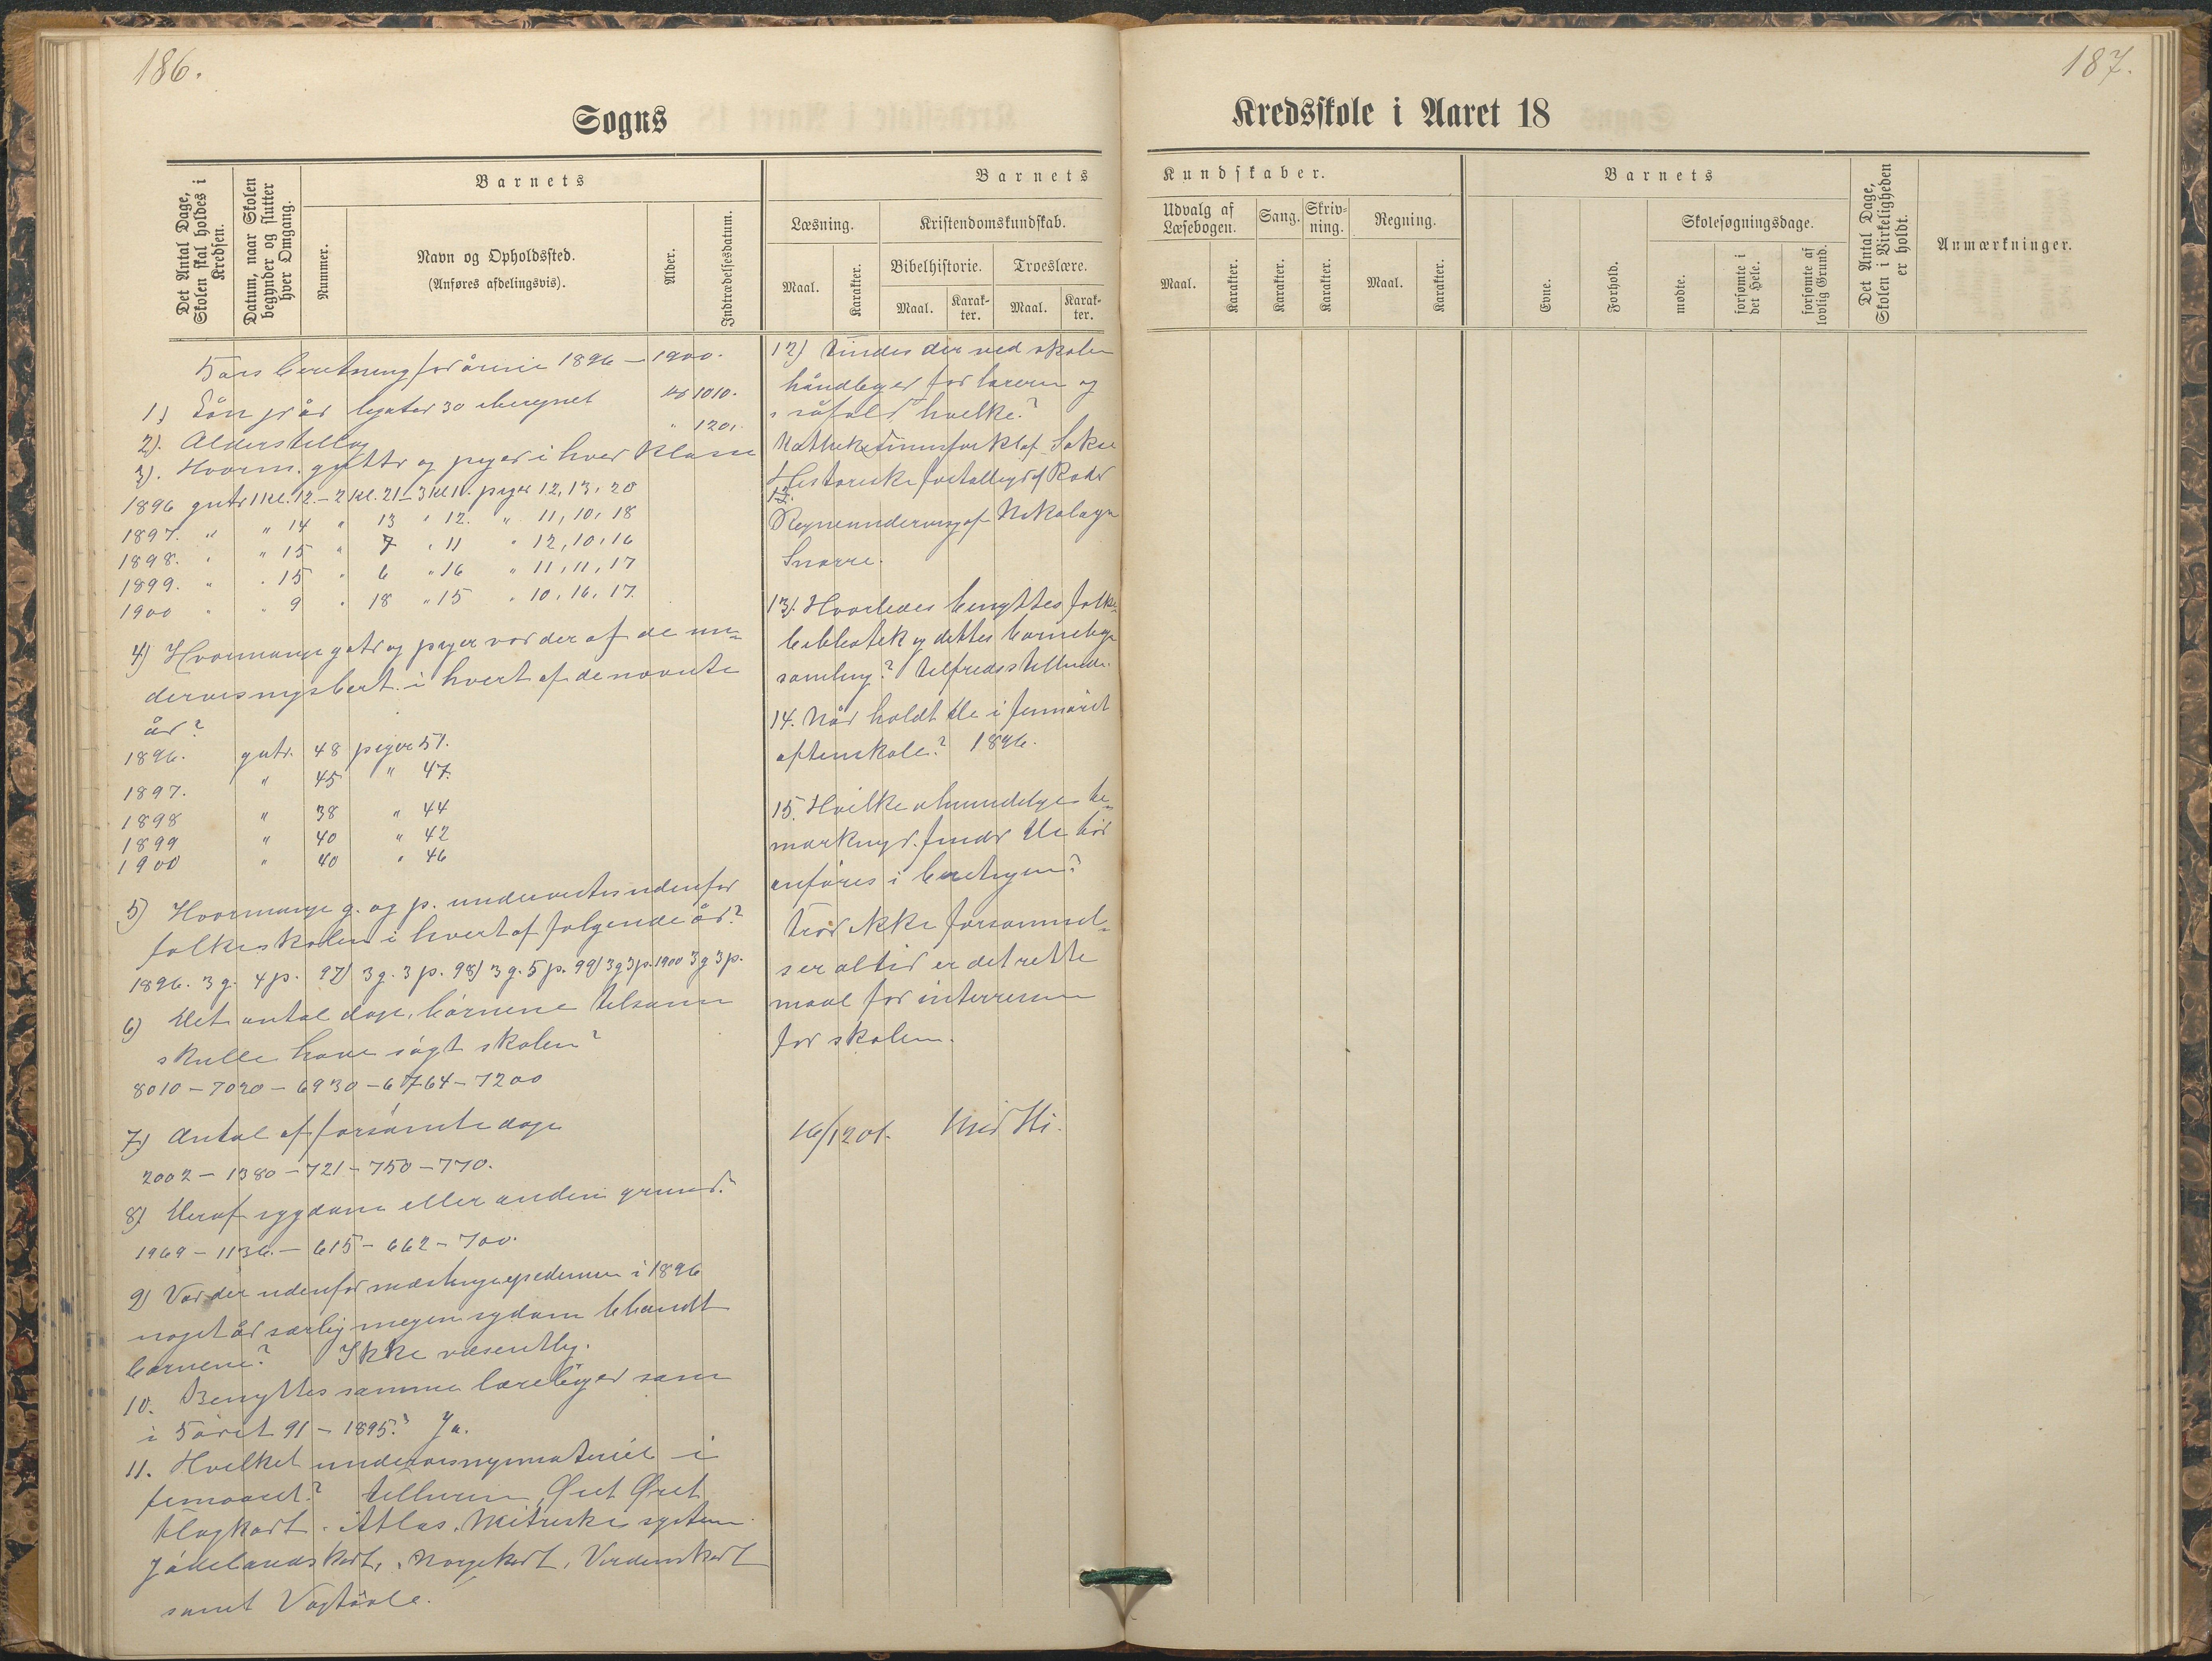 186.
Sogns
Det Antal Dage, Skolen skal holdes i Kredsen.
Datum, naar Skolen begynder og slutter hver Omgang.
Barnets
Nummer.
Navn og Opholdssted.
(Anføres afdelingsvis).
Alder.
Indtrædelsesdatum.
Barnets
Læsning.
Kristendomskundskab.
Maal.
Karakter.
Bibelhistorie.
Troeslære.
Maal.
Karak-ter.
Maal.
Karak-ter.
5 års beretning for årene 1896 – 1900.
1) Lön pr år 30 iberegnet kr 1010.
2). Alderstillæg " 120,.
3). Hvorm. gutter og piger i hver klasse
1896 gutr 1 kl. 12. – 2 kl. 21 – 3 kl 11. piger 12, 13, 20
1897. " " 14 " 13 " 12. " 11, 10, 18
1898. " " 15 " 7 " 11 " 12, 10, 16
1899. " " 15 " 6 " 16 " 11, 11, 17
1900 " " 9 " 18 " 15 " 10, 16, 17.
4) Hvormange gutr og piger var der af de un=
dervisningsbert. i hvert af de nævnte
år?
1896. gutr. 48 piger 51.
1897. " 45 " 47.
1898 " 38 " 44
1899 " 40 " 42
1900 " 40 " 46
5) Hvormange g. og p. undervistes udenfor
folkeskolen i hvert af følgende år?
1896. 3 g. 4 p. 97) 3 g. 3 p. 98) 3 g. 5 p. 99) 3 g 3 p. 1900 3 g 3 p.
6) Det antal dage, börnene tilsamm
skulle have sögt skolen?
8010 – 7020 – 6930 – 6764 – 7200
7) Antal af forsömte dage
2002 – 1380 – 721 – 750 – 770.
8) Heraf sygdom eller anden grund?
1969 – 1136. – 615 – 662 – 700.
9) Var der udenfor mæslingeepidemien i 1896
noget år særlig megen sygdom blandt
börnene? Ikke væsentlig.
10. Benyttes samme læreböger som
i 5 året 91 – 1895? Ja.
11. Hvilket undervisningsmateriel i
femaaret? Tellurium,
Atlas, Metriske system
Jödelandskart, Norgekart, Verdenskart
samt Vægtavle.
12) Findes der ved skolen
håndböger for læreren og
i såfald hvilke?
af
Historiske fortællinger af
12.
Regneundervisning af Nikolaysen
Snorre.
13). Hvorledes benyttes folke=
bibliotek og dettes barnebog=
samling? Tilfredsstillende.
14. Når holdt De i femåret
aftenskole? 1896.
15. Hvilke almindelige be=
mærkninger finder De bör
anföres i beretningen?
Tror ikke forsömmel=
ser altid er det rette
maal for interessen
for skolen.
16/1 201.
187.
Kredsskole i Aaret 18
Kundskaber.
Udvalg af Læsebogen.
Sang.
Skriv-ning.
Regning.
Maal.
Karakter.
Karakter.
Karakter.
Maal.
Karakter.
Barnets
Evne.
Forhold.
Skolesøgningsdage.
mødte.
forsømte i det Hele.
forsømte af lovlig Grund.
Det Antal Dage, Skolen i Virkeligheden er holdt.
Anmærkninger.